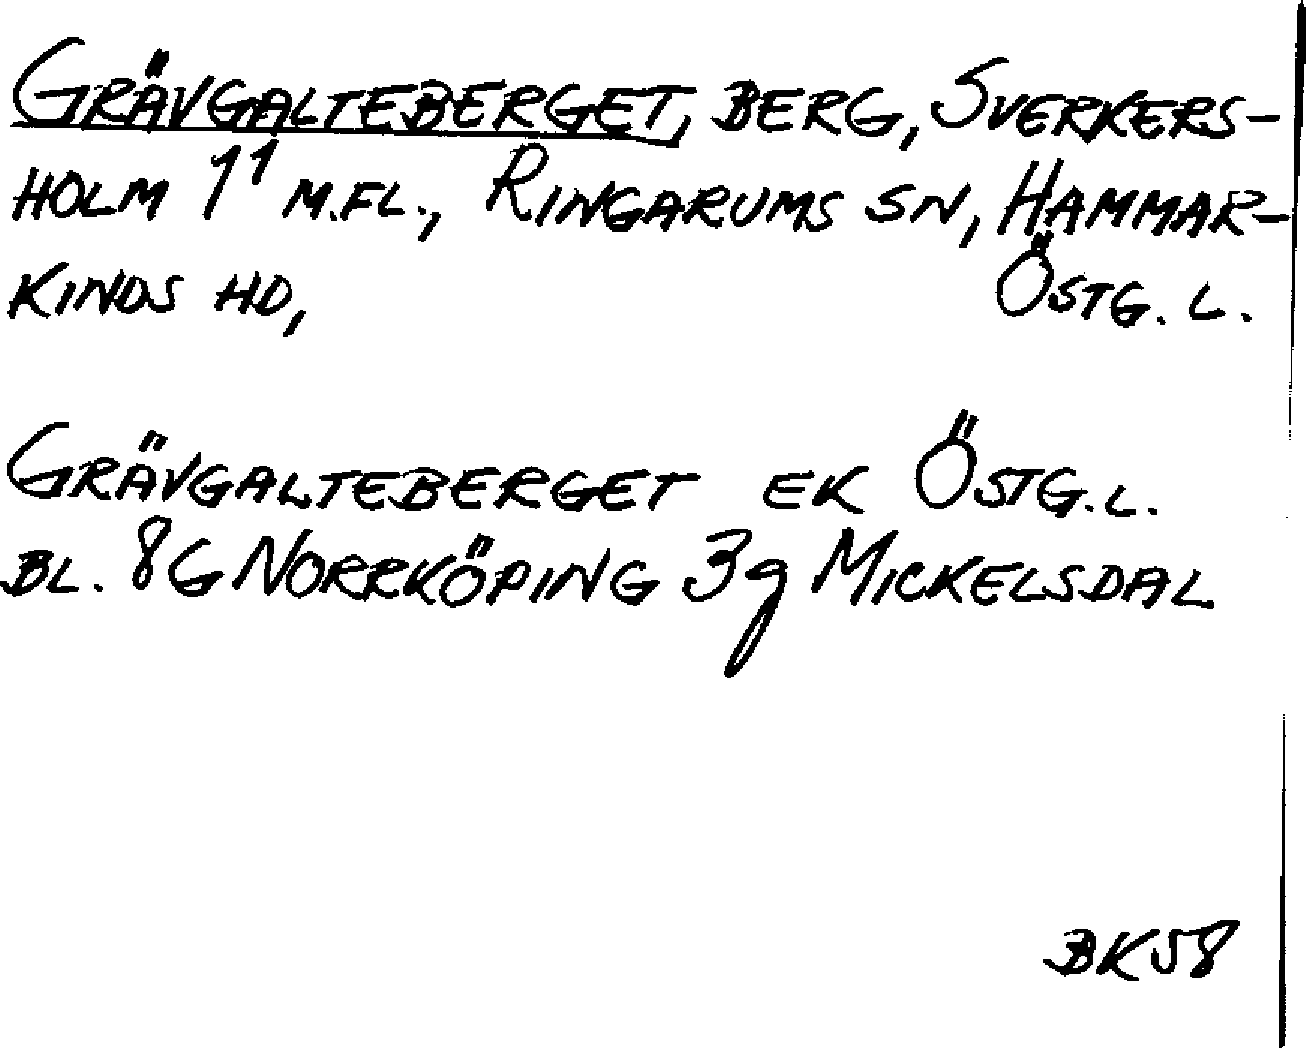 GRÄVGALTEBERGET, BERG, SVERKERS-
HOLM 1¹ M.FL., RINGARUMS SN, HAMMAR-
KINDS HD, ÖSTG. L.
GRÄVGALTEBERGET EK ÖSTG.L.
BL. 8G NORRKÖPING 3g MICKELSDAL
BK58